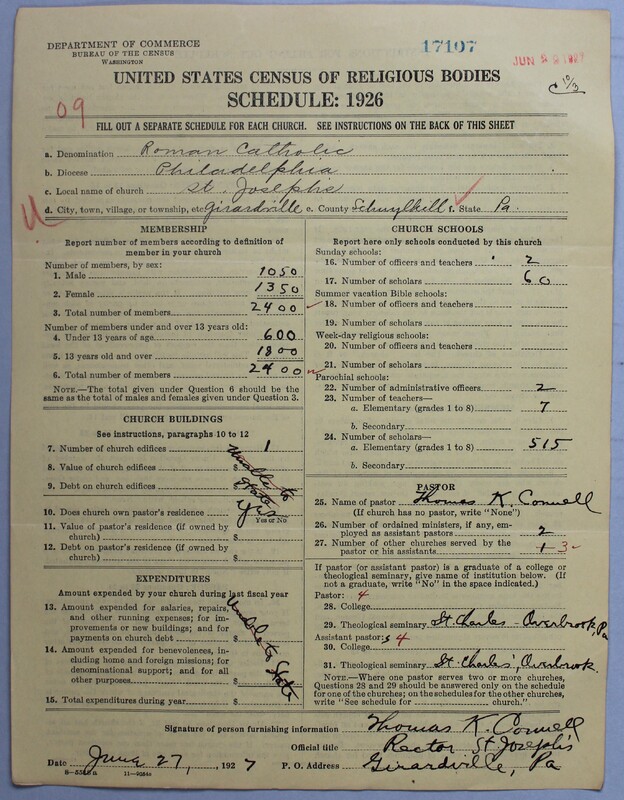 DEPARTMENT OF COMMERCE
BUREAU OF THE CENSUS
WASHINGTON
17107
JUN
1927
10/3
UNITED STATES CENSUS OF RELIGIOUS BODIES
SCHEDULE: 1926
09
FILL OUT A SEPARATE SCHEDULE FOR EACH CHURCH. SEE INSTRUCTIONS ON THE BACK OF THIS SHEET
a. Denomination Roman Catholic
b. Diocese Philadelphia
c. Local name of church St. Josephs
d. City, town, village, or township, etc Girardville e. County Schuylkill f. State Pa.
MEMBERSHIP
Report number of members according to definition of member in your church
Number of members, by sex:
1. Male 1050
2. Female 1350
3. Total number of members 2400
Number of members under and over 13 years old:
4. Under 13 years of age 600
5. 13 years old and over 1800
6. Total number of members 2400
NOTE.—The total given under Question 6 should be the same as the total of males and females given under Question 3.
CHURCH BUILDINGS
See instructions, paragraphs 10 to 12
7. Number of church edifices 1
8. Value of church edifices $
9. Debt on church edifices $
Unable to State
10. Does church own pastor's residence Yes
Yes or No
11. Value of pastor's residence (if owned by church) $
12. Debt on pastor's residence (if owned by church) $
EXPENDITURES
Amount expended by your church during last fiscal year
13. Amount expended for salaries, repairs, and other running expenses; for improvements or new buildings; and for payments on church debt $
14. Amount expended for benevolences, including home and foreign missions; for denominational support; and for all other purposes $
15. Total expenditures during year $
Unable to State
CHURCH SCHOOLS
Report here only schools conducted by this church
Sunday schools:
16. Number of officers and teachers 2
17. Number of scholars 60
Summer vacation Bible schools:
18. Number of officers and teachers
19. Number of scholars
Week-day religious schools:
20. Number of officers and teachers
21. Number of scholars
Parochial schools:
22. Number of administrative officers 2
23. Number of teachers—
a. Elementary (grades 1 to 8) 7
b. Secondary
24. Number of scholars—
a. Elementary (grades 1 to 8) 515
b. Secondary
PASTOR
25. Name of pastor Thomas K. Connell
(If church has no pastor, write "None")
26. Number of ordained ministers, if any, employed as assistant pastors 2
27. Number of other churches served by the pastor or his assistants 1 3
If pastor (or assistant pastor) is a graduate of a college or theological seminary, give name of institution below. (If not a graduate, write "No" in the space indicated.)
Pastor: 4
28. College
29. Theological seminary St. Charles - Overbrook, Pa
Assistant pastor: s 4
30. College
31. Theological seminary St. Charles', Overbrook.
NOTE.—Where one pastor serves two or more churches, Questions 28 and 29 should be answered only on the schedule for one of the churches; on the schedules for the other churches, write "See schedule for church."
Signature of person furnishing information Thomas K. Connell
Official title Rector St. Joseph's
Date June 27, 1927 P. O. Address Girardville, Pa